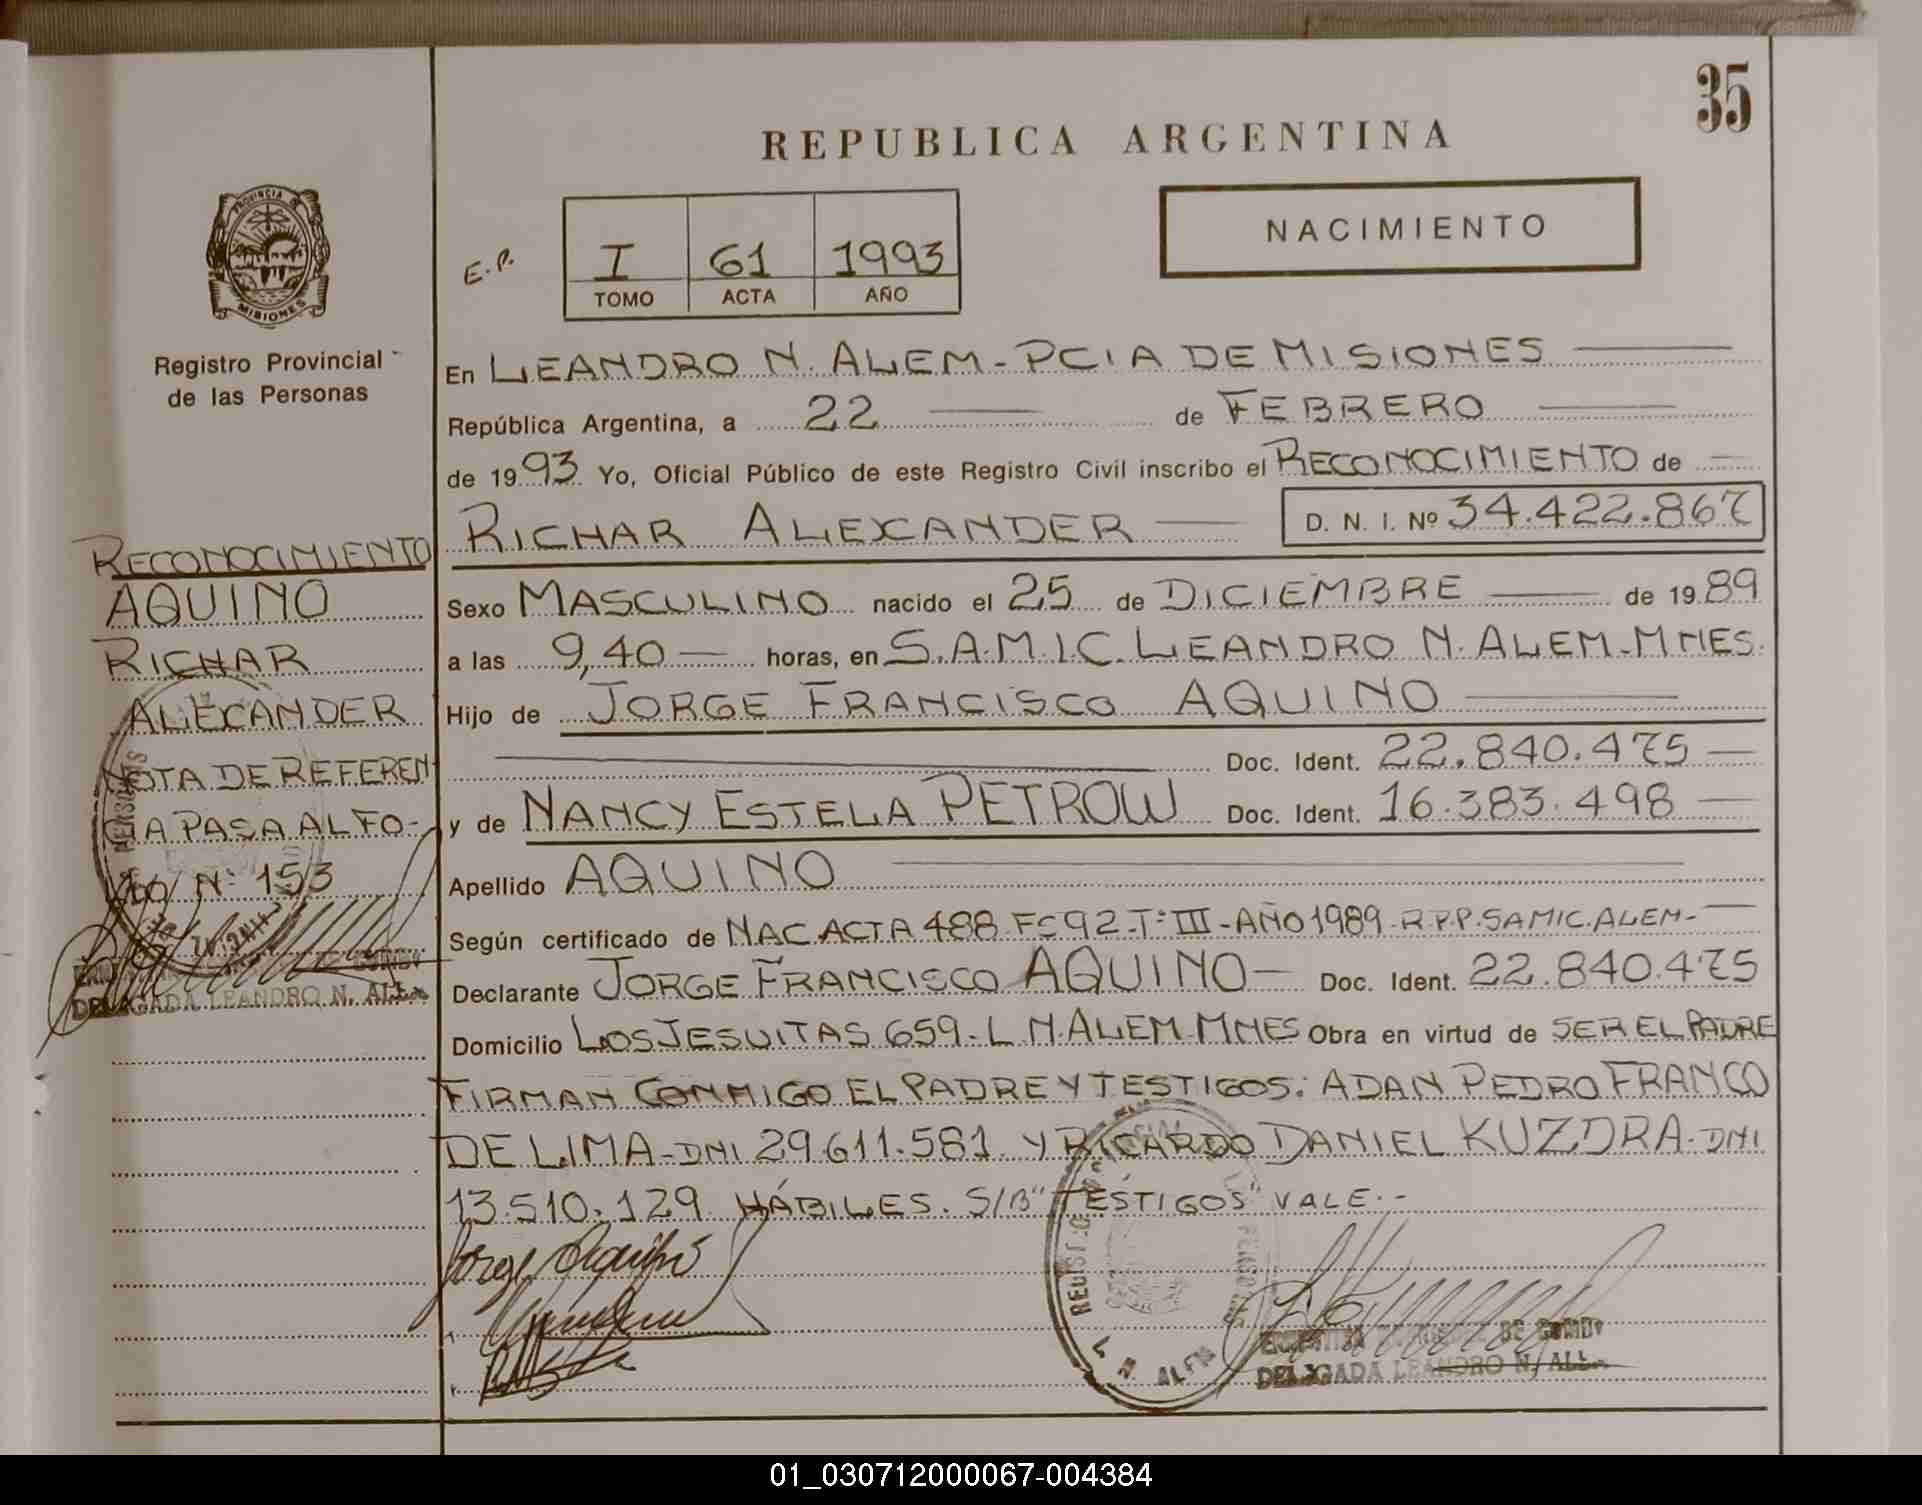 35
REPUBLICA ARGENTINA
PROVINCIA DE
MISIONES
Registro Provincial
de las Personas
E.P.
I 61 1993
TOMO ACTA AÑO
NACIMIENTO
En LEANDRO N. ALEM - PCIA DE MISIONES
República Argentina, a 22 de FEBRERO
de 1993 Yo, Oficial Público de este Registro Civil inscribo el RECONOCIMIENTO de
RICHAR ALEXANDER D. N. I. Nº 34.422.867
Sexo MASCULINO nacido el 25 de DICIEMBRE de 1989
a las 9,40 horas, en S.A.M.I.C. LEANDRO N. ALEM - MNES.
Hijo de JORGE FRANCISCO AQUINO
Doc. Ident. 22.840.475
y de NANCY ESTELA PETROW Doc. Ident. 16.383.498
Apellido AQUINO
Según certificado de NAC. ACTA 488 Fº 92 - Tº III - AÑO 1989 - R.P.P. SAMIC. ALEM -
Declarante JORGE FRANCISCO AQUINO - Doc. Ident. 22.840.475
Domicilio LOS JESUITAS 659 - L. N. ALEM - MNES Obra en virtud de SER EL PADRE
FIRMAN CONMIGO EL PADRE Y TESTIGOS: ADAN PEDRO FRANCO
DE LIMA - DNI 29.611.581 Y RICARDO DANIEL KUZDRA - DNI
13.510.129 HÁBILES. S/B "TESTIGOS" VALE.-
Jorge Aquino
L N ALEM
DE GOMBY
DELEGADA LEANDRO N. ALEM
RECONOCIMIENTO
AQUINO
RICHAR
ALEXANDER
NOTA DE REFEREN
CIA PASA AL FO-
LIO Nº 153
DE GOMBY
DELEGADA LEANDRO N. ALEM
01_030712000067-004384